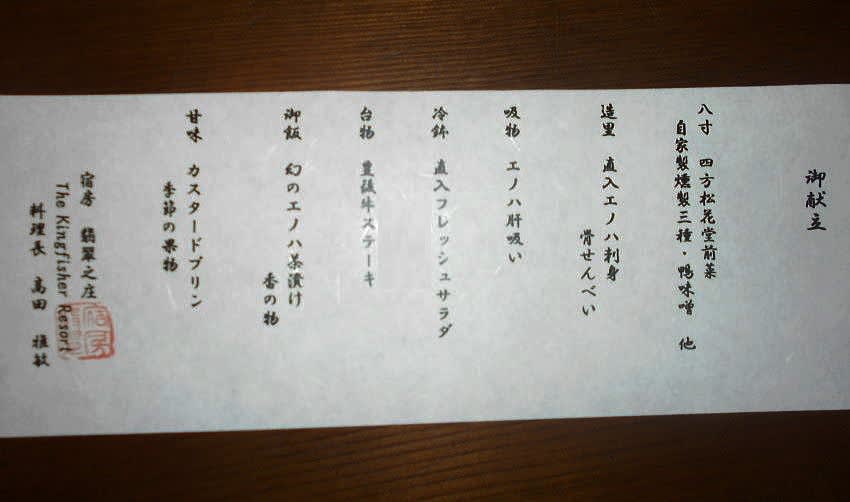 御献立
八寸 四方松花堂前菜
自家製燻製三種・鴨味噌 他
造里 直入エノハ刺身
骨せんべい
吸物 エノハ肝吸い
冷鉢 直入フレッシュサラダ
台物 豊後牛ステーキ
御飯 幻のエノハ茶漬け
香の物
甘味 カスタードプリン
季節の果物
宿房 翡翠之庄
The Kingfisher Resort
料理長 高田 雅敏